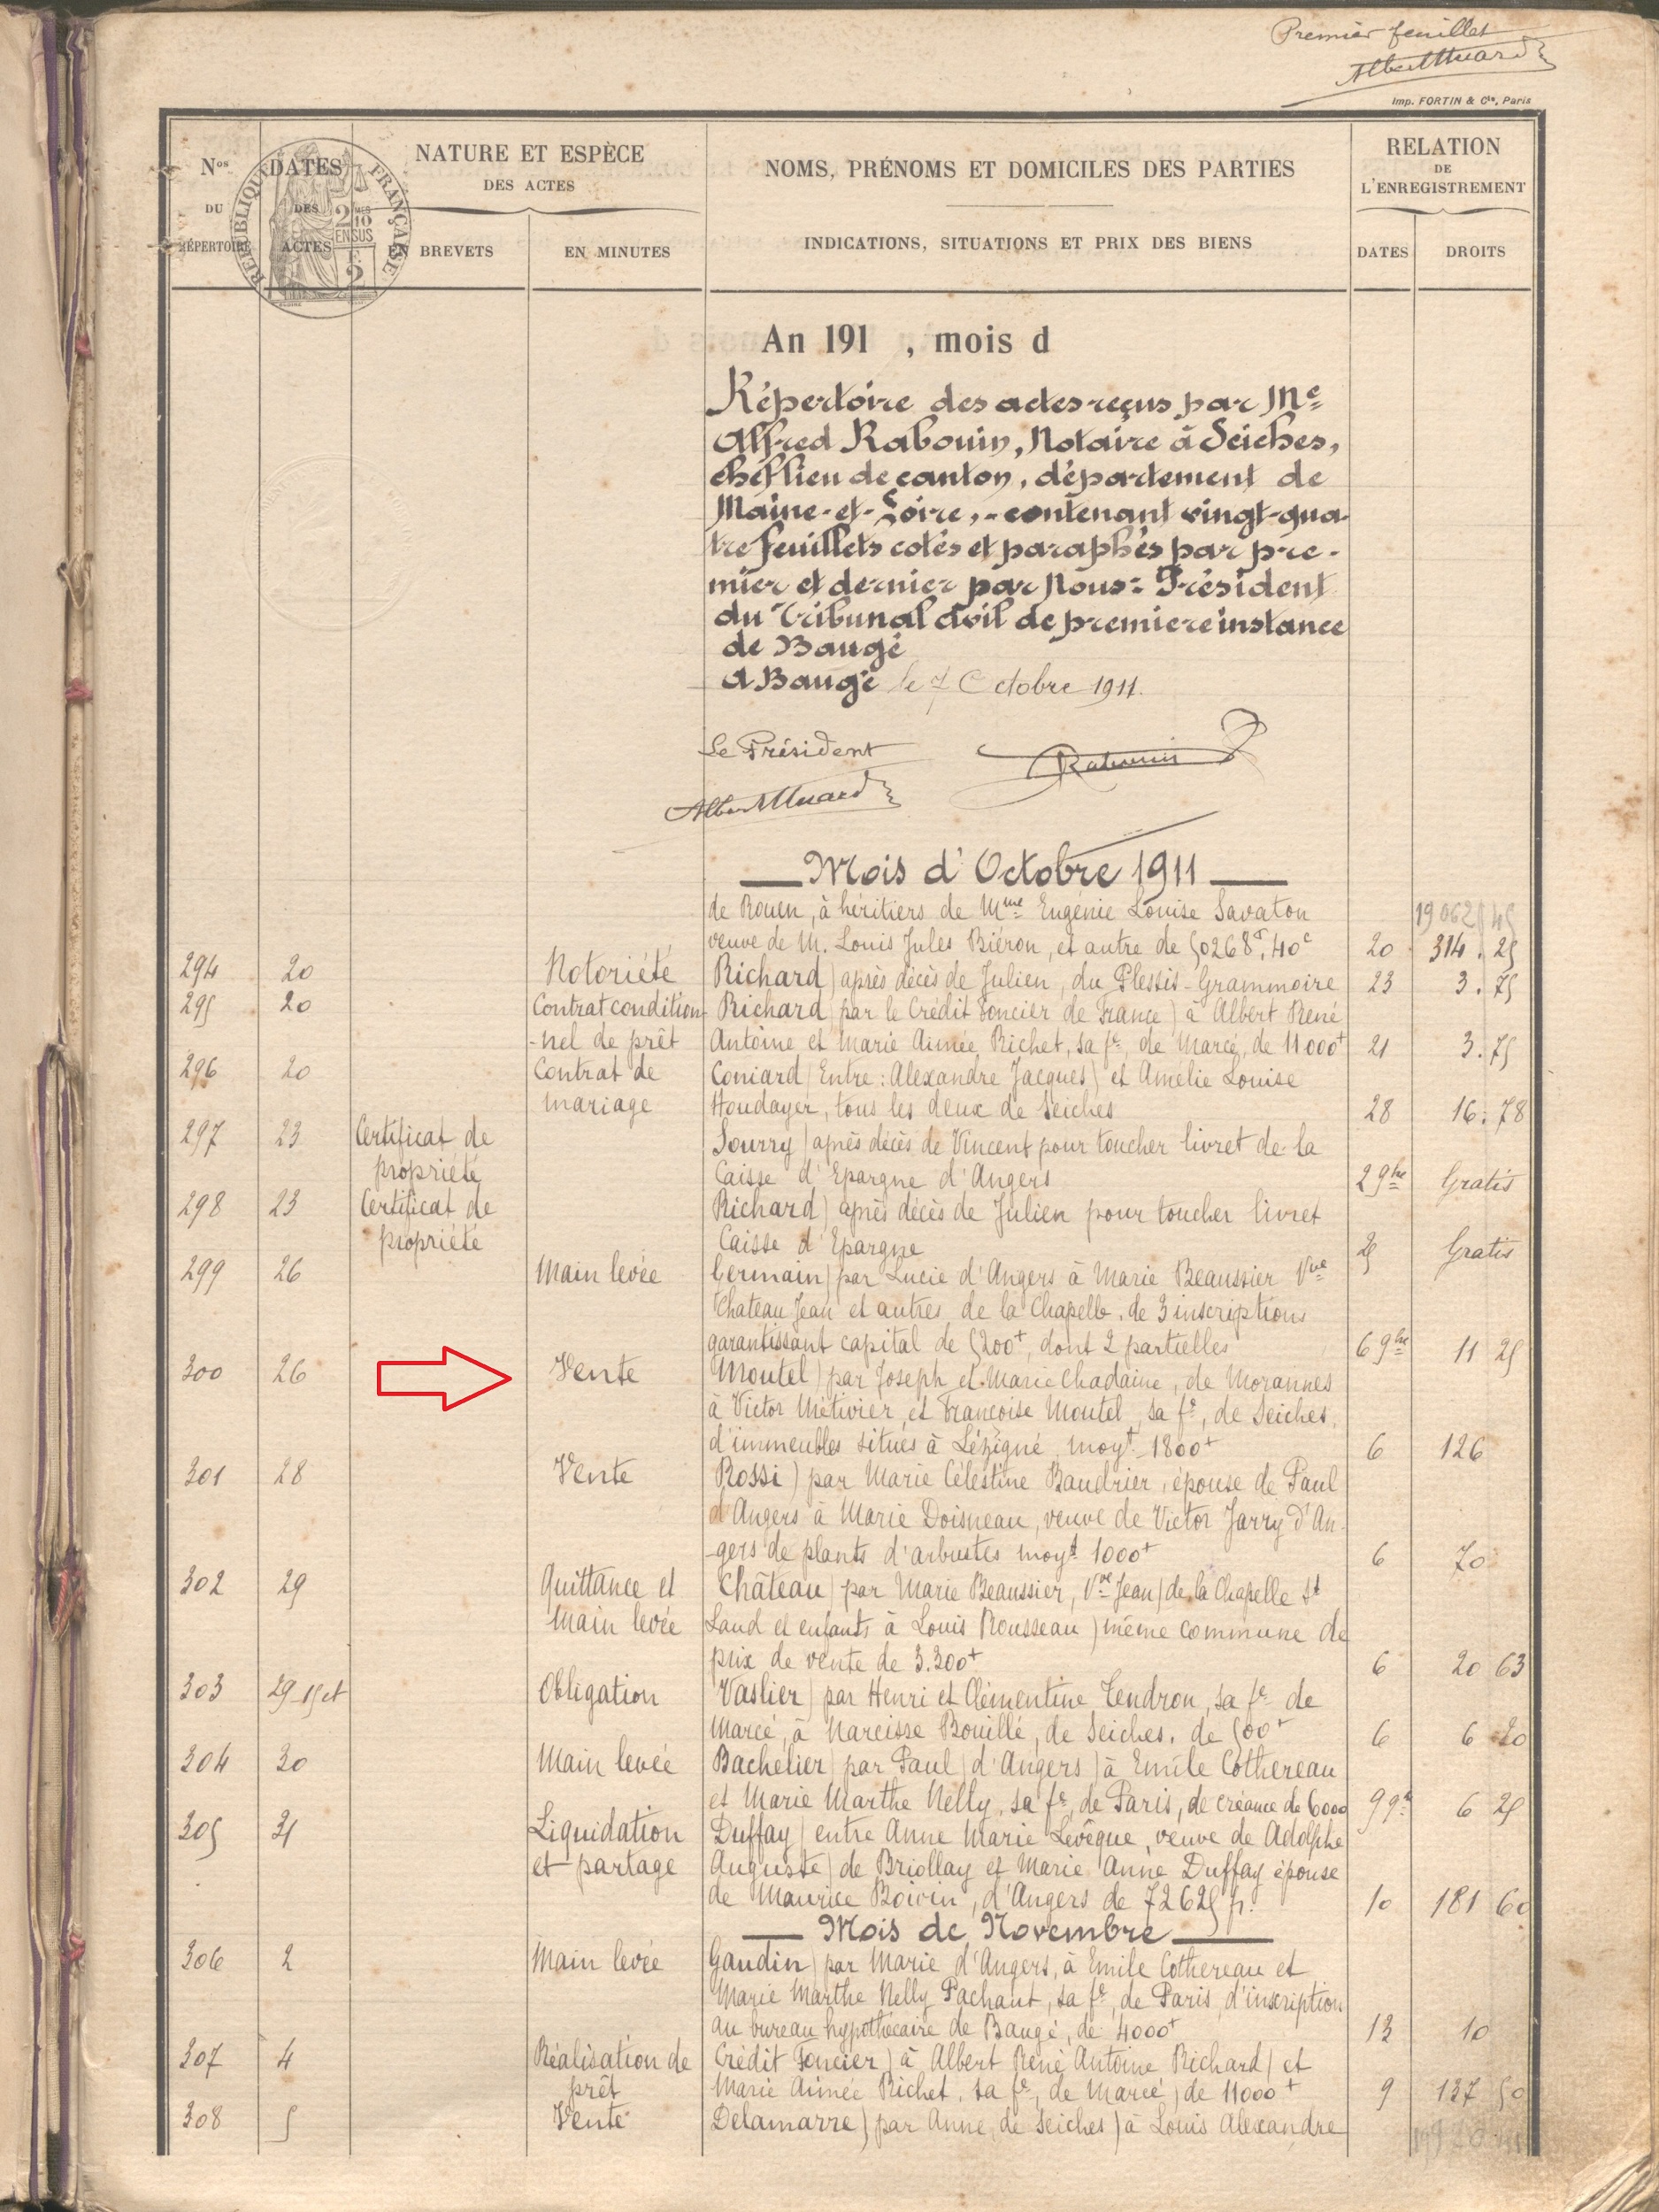 Premier feuillet
Imp. FORTIN & Cie, Paris
Nos DU RÉPERTOIRE
DATES DES ACTES
NATURE ET ESPÈCE DES ACTES
EN BREVETS
EN MINUTES
NOMS, PRÉNOMS ET DOMICILES DES PARTIES
INDICATIONS, SITUATIONS ET PRIX DES BIENS
RELATION DE L'ENREGISTREMENT
DATES
DROITS
RÉPUBLIQUE FRANÇAISE
2/10 EN SUS
An 191 , mois d
Répertoire des actes reçus par Me
Alfred Rabouin, Notaire à Seiches,
chef lieu de canton, département de
Maine-et-Loire, - contenant vingt-qua-
tre feuillets cotés et paraphés par pre-
mier et dernier par Nous: Président
du Tribunal civil de premiere instance
de Baugé
A Baugé le 7 Octobre 1911.
Le Président
Rabouin
Mois d'Octobre 1911
de Rouen, à héritiers de Mme Eugénie Louise Savaton 19062 45
veuve de M. Louis Jules Biéron, et autre de 50268f,40c 20 314.25
294 20 Notoriété Richard) après décès de Julien, du Plessis-Grammoire 23 3.75
295 20 Contrat condition- Richard) par le Crédit Foncier de France) à Albert René
-nel de prêt Antoine et Marie Aimée Richet, sa fe, de Marcé, de 11000+ 21 3.75
296 20 Contrat de Coniard) Entre: Alexandre Jacques) et Amélie Louise
mariage Houdayer, tous les deux de Seiches 28 16.78
297 23 Certificat de Sourry) après décès de Vincent pour toucher livret de la
propriété Caisse d'Epargne d'Angers 2 9bre Gratis
298 23 Certificat de Richard) après décès de Julien pour toucher livret
propriété Caisse d'Epargne 25 Gratis
299 26 Main levée Germain) par Lucie d'Angers à Marie Beaussier Vve
Chateau Jean et autres, de la Chapelle, de 3 inscriptions
garantissant capital de 5200+, dont 2 partielles 6 9bre 11 25
300 26 Vente Moutel) par Joseph et Marie Chadaine, de Morannes
à Victor Métivier, et Françoise Moutel, sa fe, de Seiches,
d'immeubles situés à Lézigné, moyt 1800+ 6 126
301 28 Vente Rossi) par Marie Célestine Baudrier, épouse de Paul
d'Angers à Marie Doisneau, veuve de Victor Jarry d'An-
-gers de plants d'arbustes moyt 1000+ 6 70
302 29 Quittance et Château) par Marie Beaussier, Vve Jean) de la Chapelle St
Main levée Laud et enfants à Louis Rousseau) même commune de
prix de vente de 3.300+ 6 20 63
303 29 Obligation Vaslier) par Henri et Clémentine Tendron, sa fe de
Marcé, à Narcisse Bouillé, de Seiches, de 500+ 6 6 20
304 30 Main levée Bachelier) par Paul) d'Angers) à Emile Cothereau
et Marie Marthe Nelly, sa fe, de Paris, de créance de 6000 9 9bre 6 25
305 31 Liquidation Duffay) entre Anne Marie Levêque, veuve de Adolphe
et partage Auguste) de Briollay et Marie Anne Duffay épouse
de Maurice Boivin, d'Angers de 72625 fr. 10 181 60
Mois de Novembre
306 2 Main levée Gaudin) par Marie d'Angers, à Emile Cothereau et
Marie Marthe Nelly Pachaut, sa fe, de Paris, d'inscription
au bureau hypothécaire de Baugé, de 4000+ 13 10
307 4 Réalisation de Crédit Foncier) à Albert René Antoine Richard) et
prêt Marie Aimée Richet, sa fe, de Marcé) de 11000+ 9 137 50
308 5 Vente Delamarre) par Anne, de Seiches) à Louis Alexandre